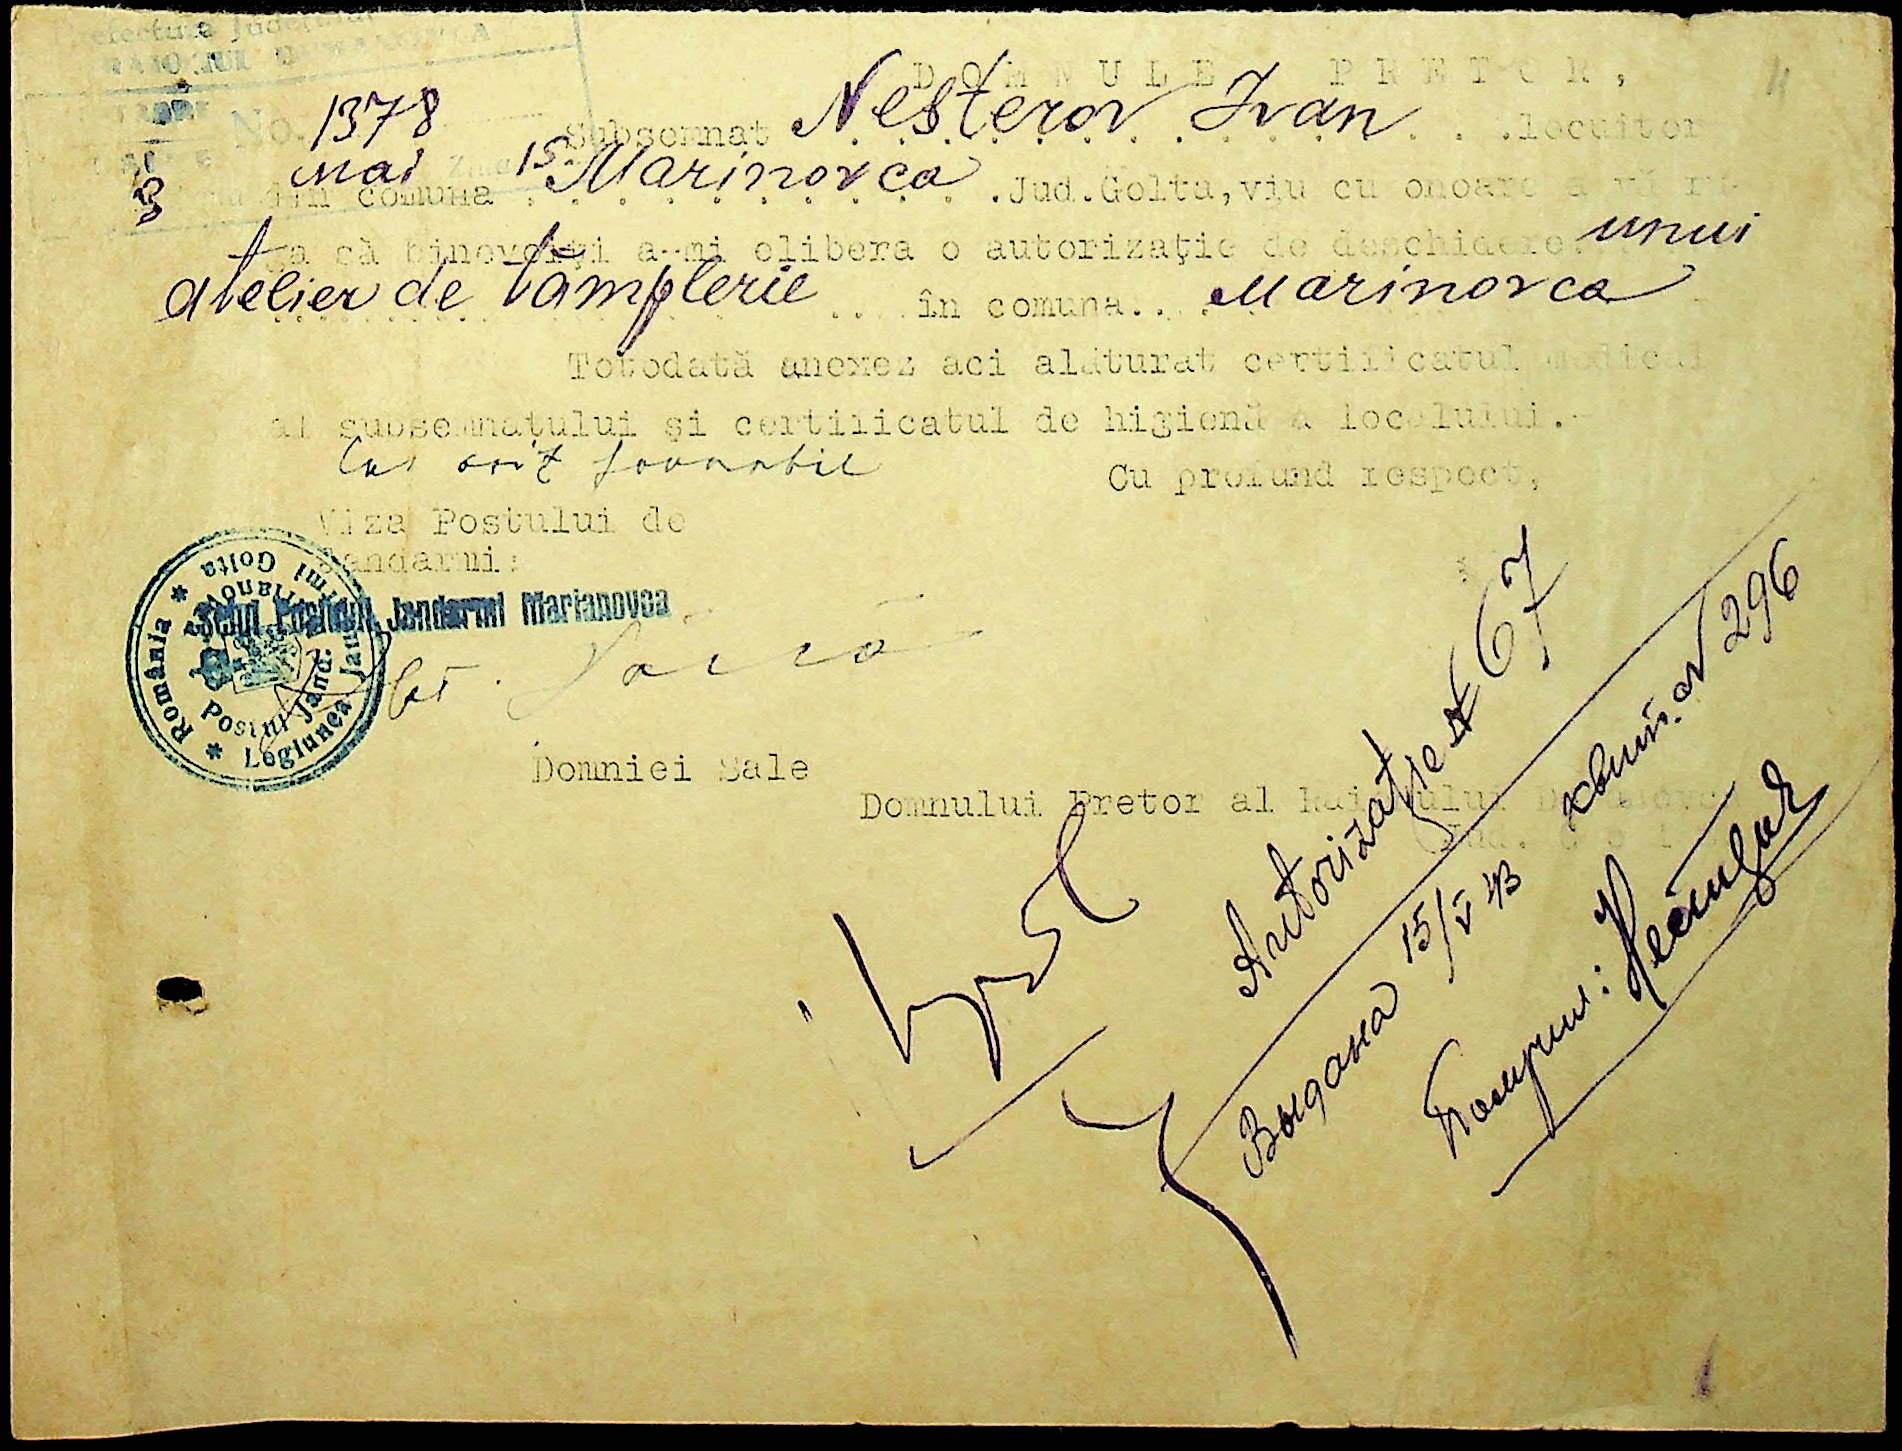 Prefectura Judeţului
RAIONUL
No. 1378
1943 Mai Ziua 15
DOMNULE PRETOR,
Subsemnat Nesterov Ivan locuitor
din comuna Marinovca Jud.Golta, viu cu onoare a vă ru-
ga să binevoiţi a-mi elibera o autorizaţie de deschidere unui
atelier de tâmplerie în comuna Marinovca
Totodată anexez aci alăturat certificatul medical
al subsemnatului şi certificatul de higienă a localului.-
Cu profund respect,
Viza Postului de
Jandarmi:
România * Legiunea Jandarmi Golta *
Postul Jand.
Şeful Postului Jandarmi Marianovca
Domniei Sale
Domnului Pretor al Raionului
Jud.
Autorizaţie № 67
Выдана 15/V 43 квит. № 296
Получил: